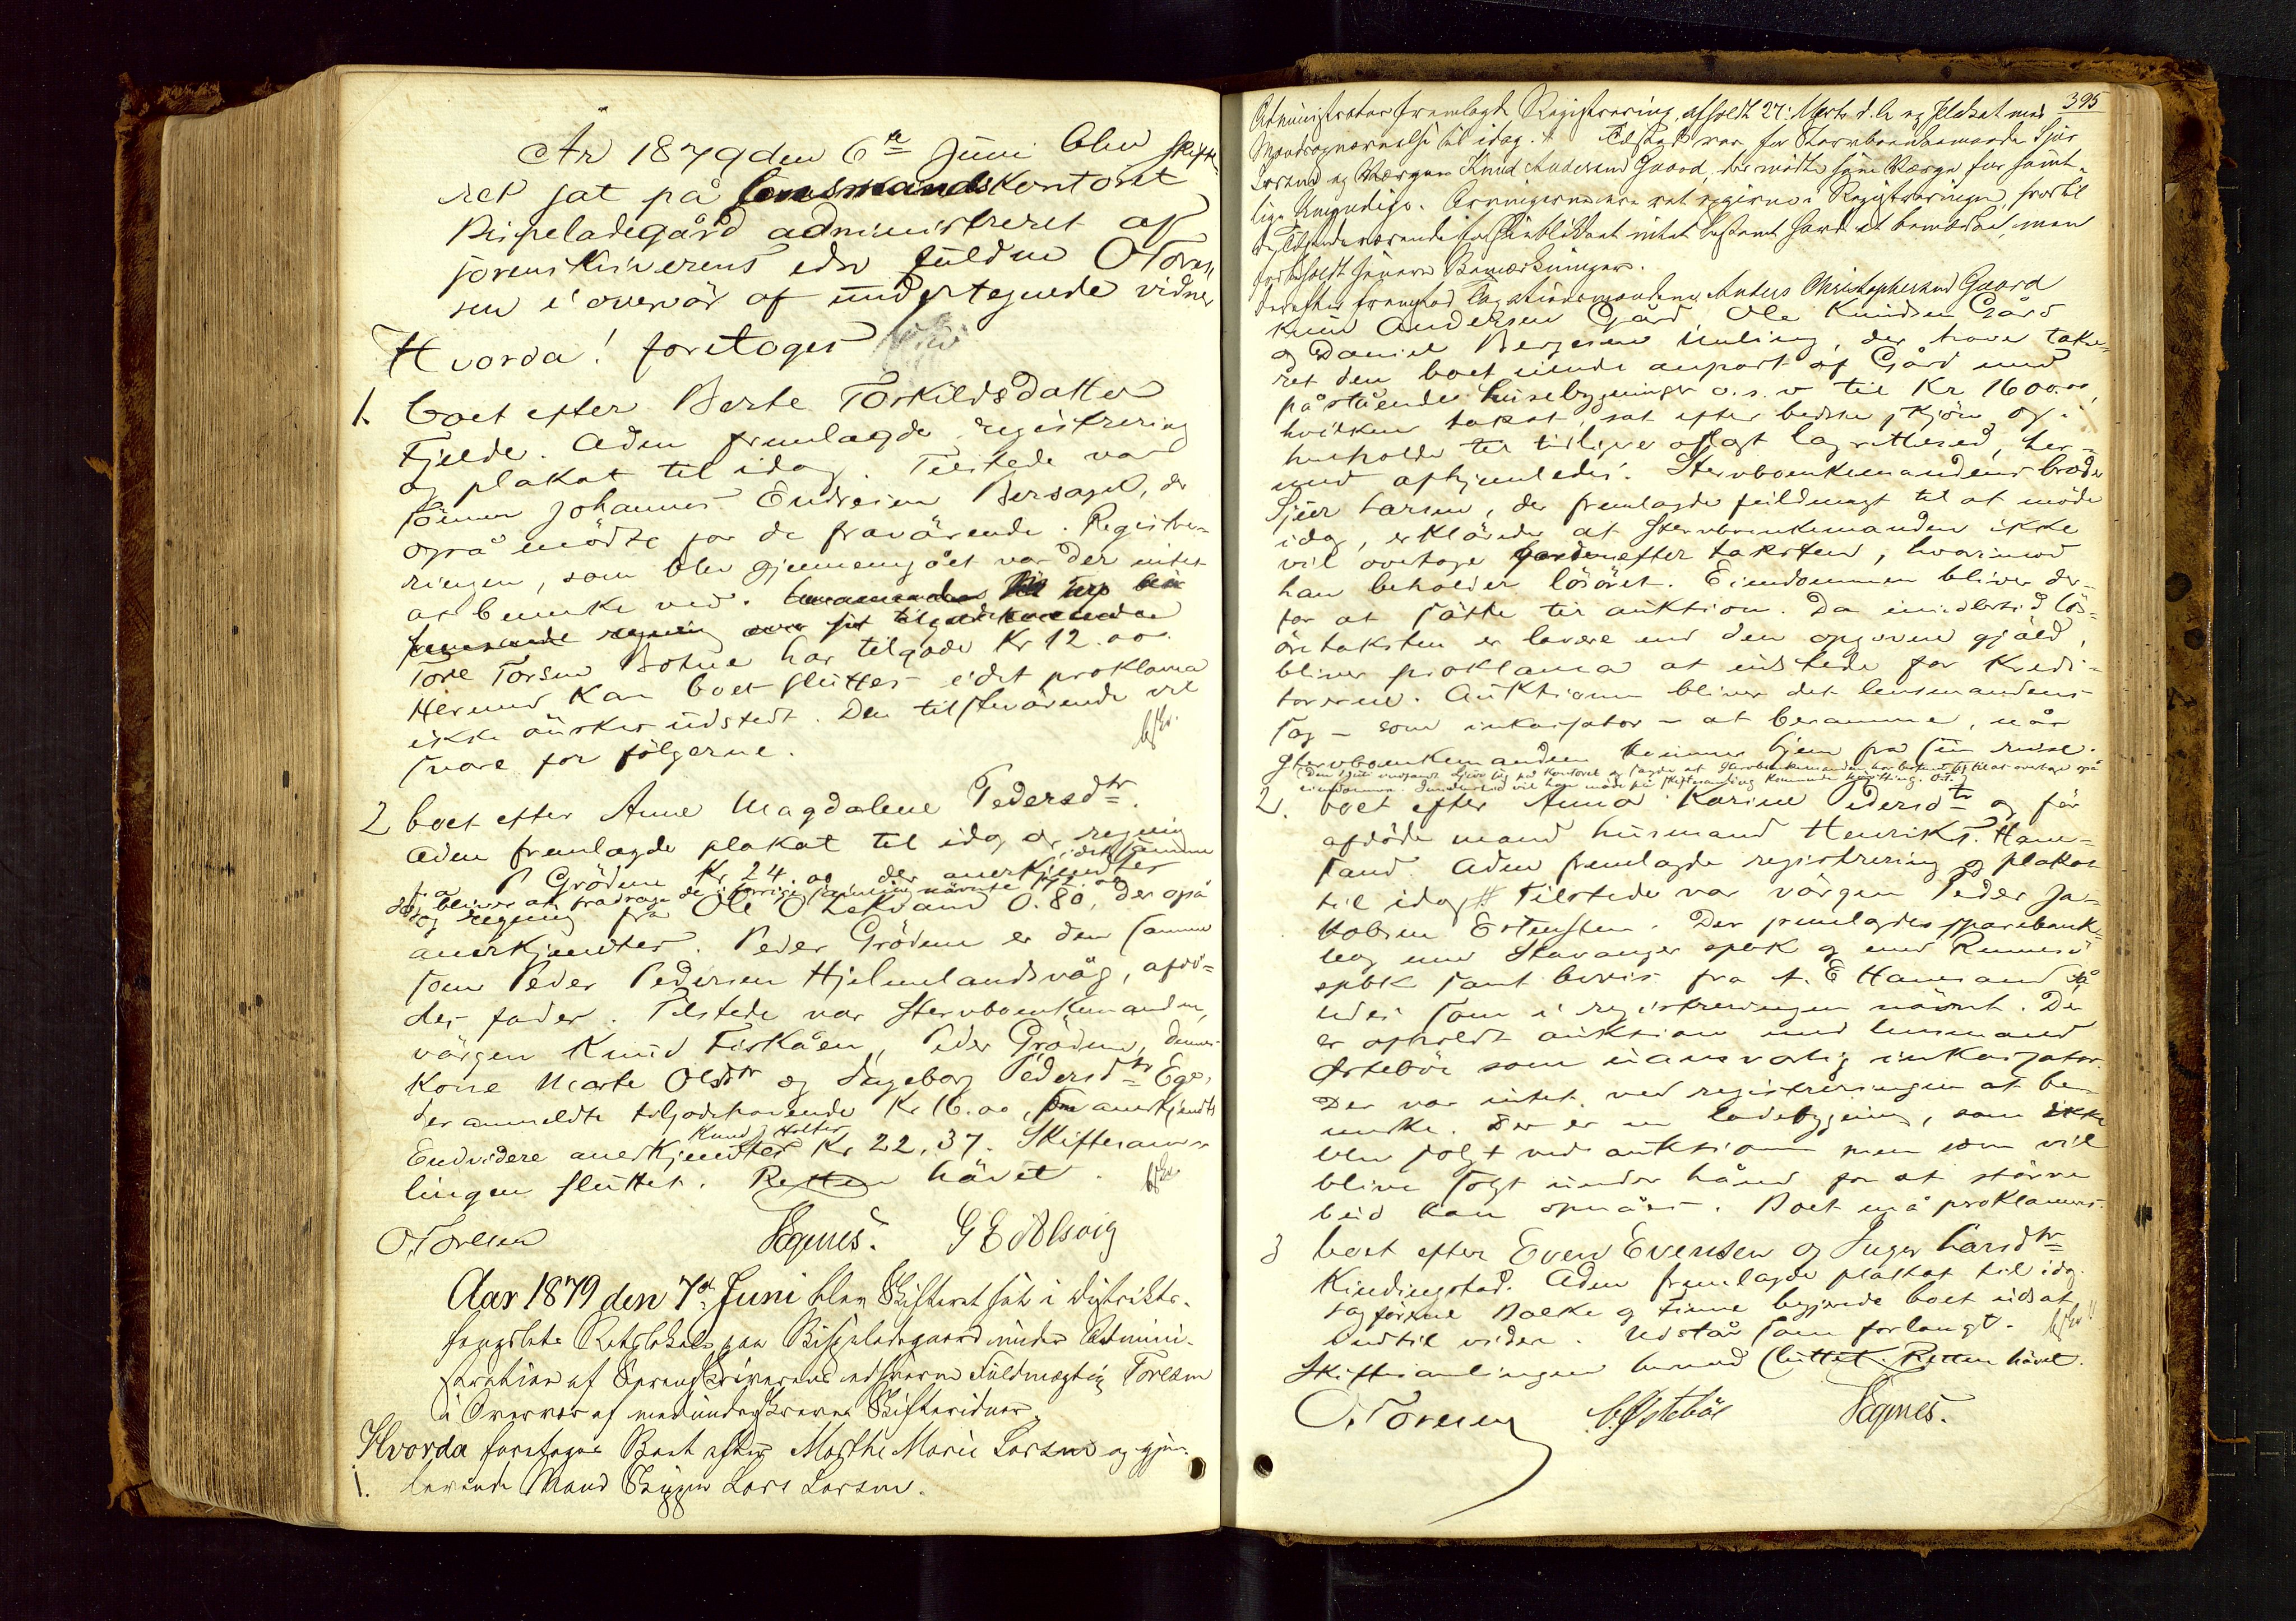 År 1879 den 6te Juni blev skifte-
ret sat på lensmandskontoret
Bispeladegård administreret af
sorenskriverens edsv fuldm O Tore-
sen i overvär af undertegnede vidner
Hvorda! foretages
1. boet efter Berte Torkildsdatter
Fjelde. Adm fremlagde registrering
og plakat til idag. Tilstede var
sönnen Johannes Endresen Bersagel, der
også mödte for de fraværende. Registre-
ringen, som blev gjennemgået var der intet
at bemerke ved.
Tore Torsen Botne har tilgode Kr 12.00.
Hermed kan boet sluttes idet proklama
ikke önskes udstedt. Den tilstevärende vil
svare for fölgerne.
2 boet efter Anne Magdalene Pedersdtr.
Adm fremlagde plakat til idag og regning
fra P Grödem Kr 24.00 der anerkjendtes
og regning fra Ole O 0.80, der også
anerkjendtes. Peder Grödem er den samme
som Peder Pedersen Hjelmlandsvåg, afdö-
des fader. Tilstede var Stervboenkemanden,
värgen Knud Fiskåen, Peder Grödem, dennes
kone Marte Olsdtr og Ingeborg Pedersdtr Ege,
der anmeldte tilgodehavende Kr 16.00, som anerkjendtes
Knud Holter
Endvidere anerkjendtes Kr 22,37. Skiftesam-
lingen sluttet. Retten hävet.
O Toresen Egenes. G E Alsvig
Aar 1879 den 7de Juni blev Skifteret sat i Distrikts-
fængslets Retslokale paa Bispeladegaard under Admini-
stration af Sorenskriverens edsvorne Fuldmægtig Toresen
i Overvær af medunderskrevne Skiftevidner,
Hvorda foretages Boet efter Marthe Marie Larsen og gjen-
1. levende Mand Skipper Lars Larsen.
395
Administrator fremlagde Registrering, afholdt 27: Marts d. A og Plakat med
til idag. Tilstede var for Stervboenkemanden Sjur
Larsen og Værgen Knud Andersen Gaard, der mödte som Værge for samt-
lige Umyndige. Arvingerne ere ret opgivne i Registreringen, hvortil
de Tilstedeværende for Öieblikket intet bestemt havde at bemærke, men
forbeholdt senere Bemærkninger.
Derefter fremstod Anders Christophersen Gaard
Knud Andersen Gård, Ole Knudsen Gård
og Daniel Bergesen Meling, der have takse-
ret den boet eiende anpart af Gård med
påstående husebygninger o.s.v til Kr 1600.00,
hvilken takst, sat efter bedste skjön og i
henhold til tidligere aflagt lagrettesed, her-
med afhjemledes. Stervboenkemandens broder
Sjur Larsen, der fremlagde fuldmagt til at möde
idag, erklärede at Stervboenkemanden ikke
vil overtage gården efter taksten, hvorimod
han beholder lösöret. Eiendommen bliver der-
for at sätte til auktion. Da imidlertid lös-
öretaksten er lavere end den opgivne gjäld,
bliver proklama at udstede for kredi-
torerne. Auktionen bliver det lensmandens
sag – som inkassator – at beramme, når
Stervboenkemanden kommer hjem fra sin reise.
2. boet efter Anna Karine Pedersdtr og för
afdöde mand husmand Henrik T. Ham-
sand. Adm fremlagde registrering og plakat
til idag. Tilstede var värgen Peder Ja-
kobsen Der fremlagdes sparebank-
bog med Stavanger spbk og med Rennesö
spbk samt bevis fra A. E Hamsand så-
ledes som i registreringen nävnt. Der
er afholdt auktion med lensmand
Østebö som uansvarlig inkassator.
Der var intet ved registreringen at be-
merke. Der er en ladebygning, som ikke
blev solgt ved auktionen men som vil
blive solgt under hånd for at större
bud kan opnåes. Boet må proklameres.
3 boet efter Even Evensen og Inger Larsdtr
Kindingstad. Adm fremlagde plakat til idag.
Sagförerne Bakke og Finne begjerede boet udsat
indtil videre. Udstår som forlangt.
Skiftesamlingen hermed sluttet. Retten hävet.
O. Toresen C. Østeböe Egenes.